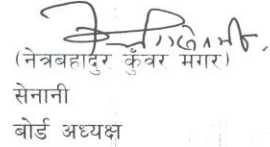 (नेत्रबहादुर कुँवर मगर)
सेनानी
बोर्ड अध्यक्ष